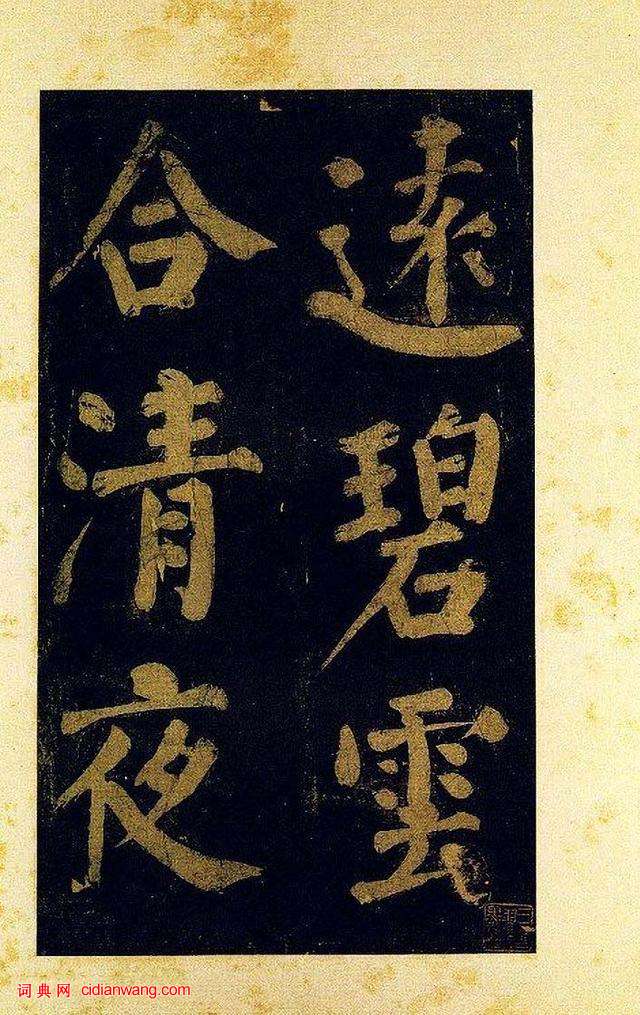 遠碧雲
合清夜
词典网 cidianwang.com